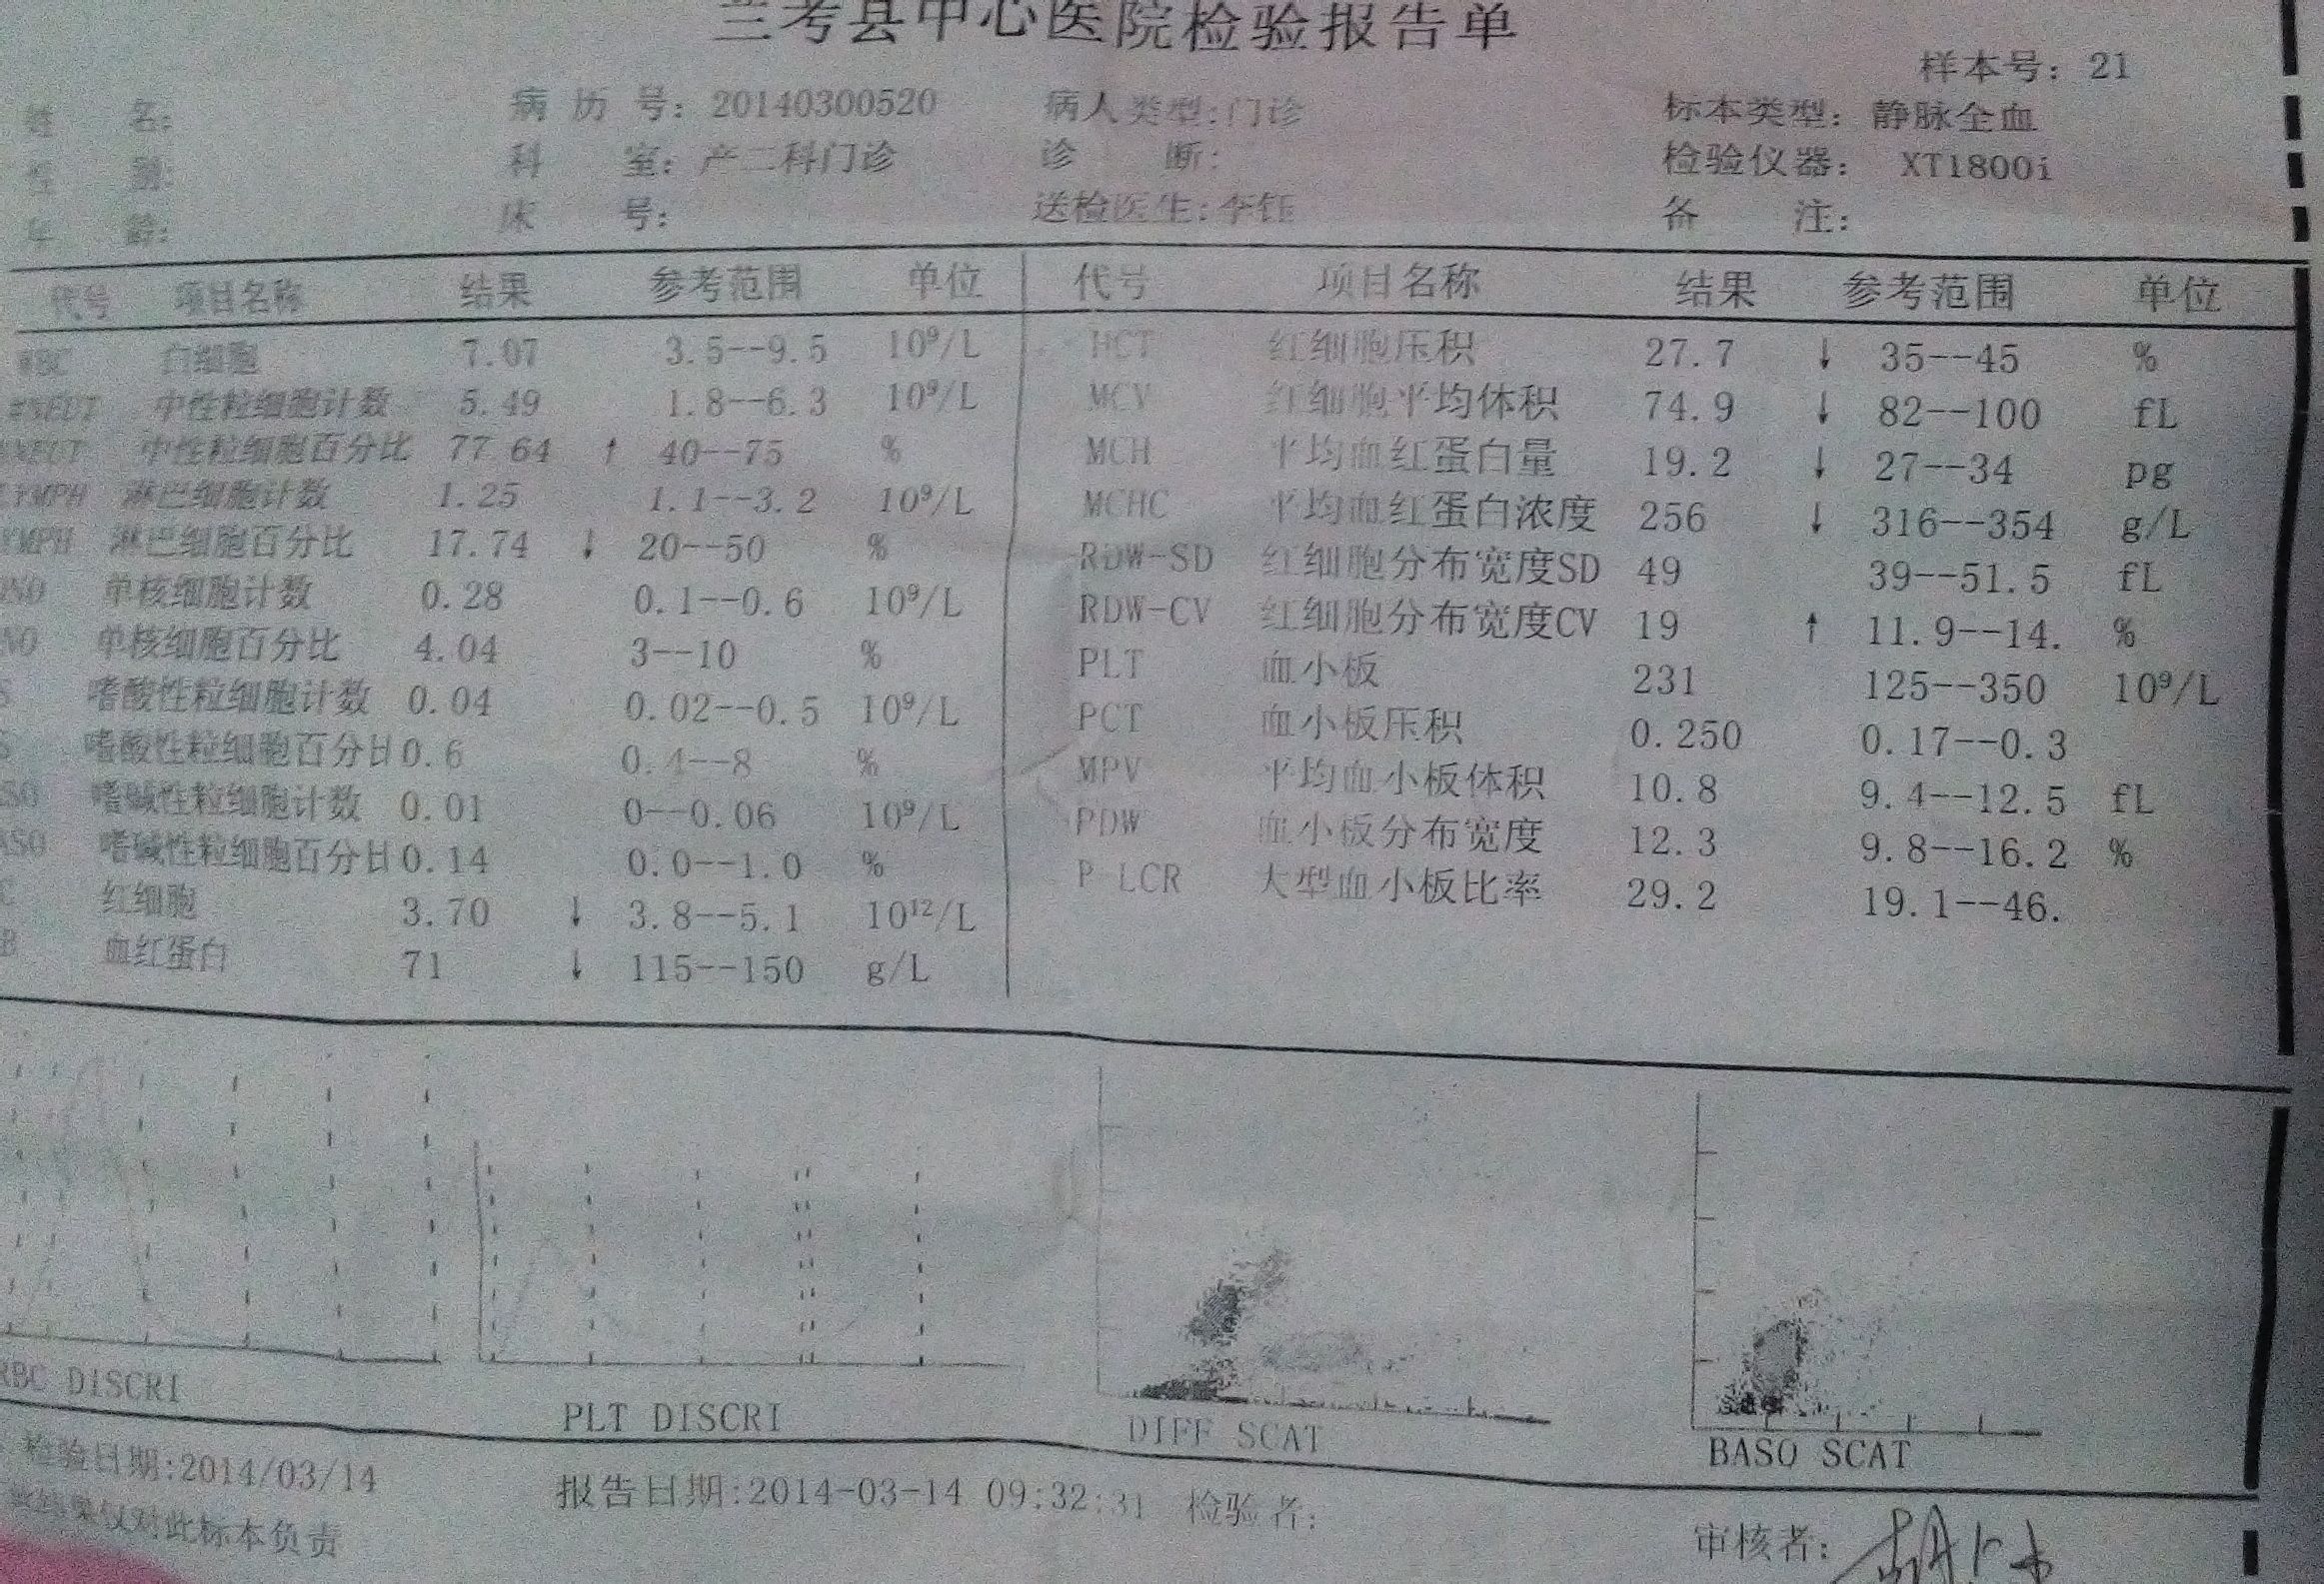 兰考县中心医院检验报告单
样本号: 21
姓 名: 病 历 号: 20140300520 病人类型:门诊 标本类型: 静脉全血
性 别: 科 室: 产二科门诊 诊 断: 检验仪器: XT1800i
年 龄: 床 号: 送检医生:李钰 备 注:
代号 项目名称 结果 参考范围 单位 代号 项目名称 结果 参考范围 单位
WBC 白细胞 7.07 3.5--9.5 10⁹/L HCT 红细胞压积 27.7 ↓ 35--45 %
中性粒细胞计数 5.49 1.8--6.3 10⁹/L MCV 红细胞平均体积 74.9 ↓ 82--100 fL
中性粒细胞百分比 77.64 ↑ 40--75 % MCH 平均血红蛋白量 19.2 ↓ 27--34 pg
LYMPH 淋巴细胞计数 1.25 1.1--3.2 10⁹/L MCHC 平均血红蛋白浓度 256 ↓ 316--354 g/L
YMPH 淋巴细胞百分比 17.74 ↓ 20--50 % RDW-SD 红细胞分布宽度SD 49 39--51.5 fL
单核细胞计数 0.28 0.1--0.6 10⁹/L RDW-CV 红细胞分布宽度CV 19 ↑ 11.9--14. %
NO 单核细胞百分比 4.04 3--10 % PLT 血小板 231 125--350 10⁹/L
S 嗜酸性粒细胞计数 0.04 0.02--0.5 10⁹/L PCT 血小板压积 0.250 0.17--0.3
S 嗜酸性粒细胞百分 0.6 0.4--8 % MPV 平均血小板体积 10.8 9.4--12.5 fL
ASO 嗜碱性粒细胞计数 0.01 0--0.06 10⁹/L PDW 血小板分布宽度 12.3 9.8--16.2 %
ASO 嗜碱性粒细胞百分 0.14 0.0--1.0 % P-LCR 大型血小板比率 29.2 19.1--46.
C 红细胞 3.70 ↓ 3.8--5.1 10¹²/L
B 血红蛋白 71 ↓ 115--150 g/L
RBC DISCRI PLT DISCRI DIFF SCAT BASO SCAT
检验日期:2014/03/14 报告日期:2014-03-14 09:32:31 检验者: 审核者:
结果仅对此标本负责